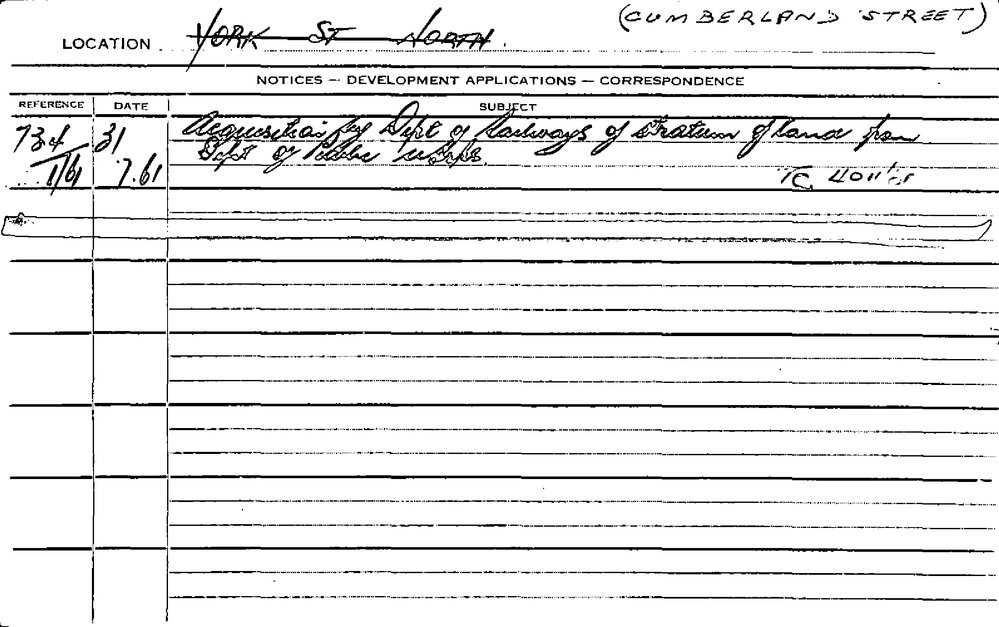 LOCATION YORK ST NORTH (CUMBERLAND STREET)
NOTICES — DEVELOPMENT APPLICATIONS — CORRESPONDENCE
REFERENCE DATE SUBJECT
734 31 Acquisition by Dept of Railways of Stratum of land from
1/61 7.61 Dept of Public Works.
TC